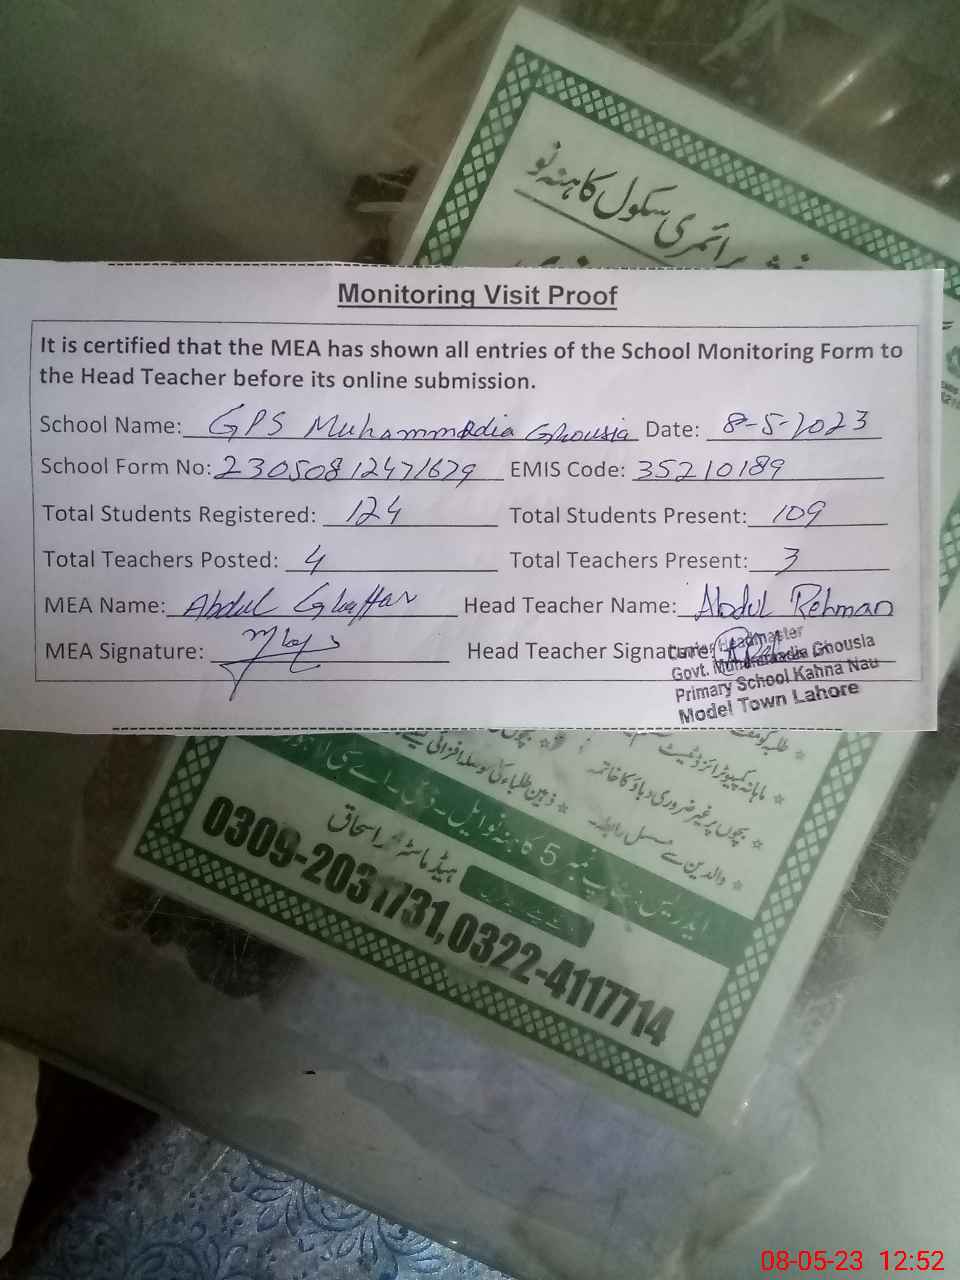 پرائمری سکول کاہنہ نو
Monitoring Visit Proof
It is certified that the MEA has shown all entries of the School Monitoring Form to
the Head Teacher before its online submission.
School Name: GPS Muhammadia Ghousia Date: 8-5-2023
School Form No: 23050812471679 EMIS Code: 35210189
Total Students Registered: 124 Total Students Present: 109
Total Teachers Posted: 4 Total Teachers Present: 3
MEA Name: Abdul Ghaffar Head Teacher Name: Abdul Rehman
MEA Signature: Head Teacher Signature:
Headmaster
Govt. Muhammadia Ghousia
Primary School Kahna Nau
Model Town Lahore
بچوں پر غیر ضروری دباؤ کا خاتمہ
ذہین طلباء کی حوصلہ افزائی کیلئے
والدین سے مسلسل رابطہ۔
نمبر 5 کاہنہ نو
ہیڈ ماسٹر محمد اسحاق
0309-2031731,0322-4117714
08-05-23 12:52